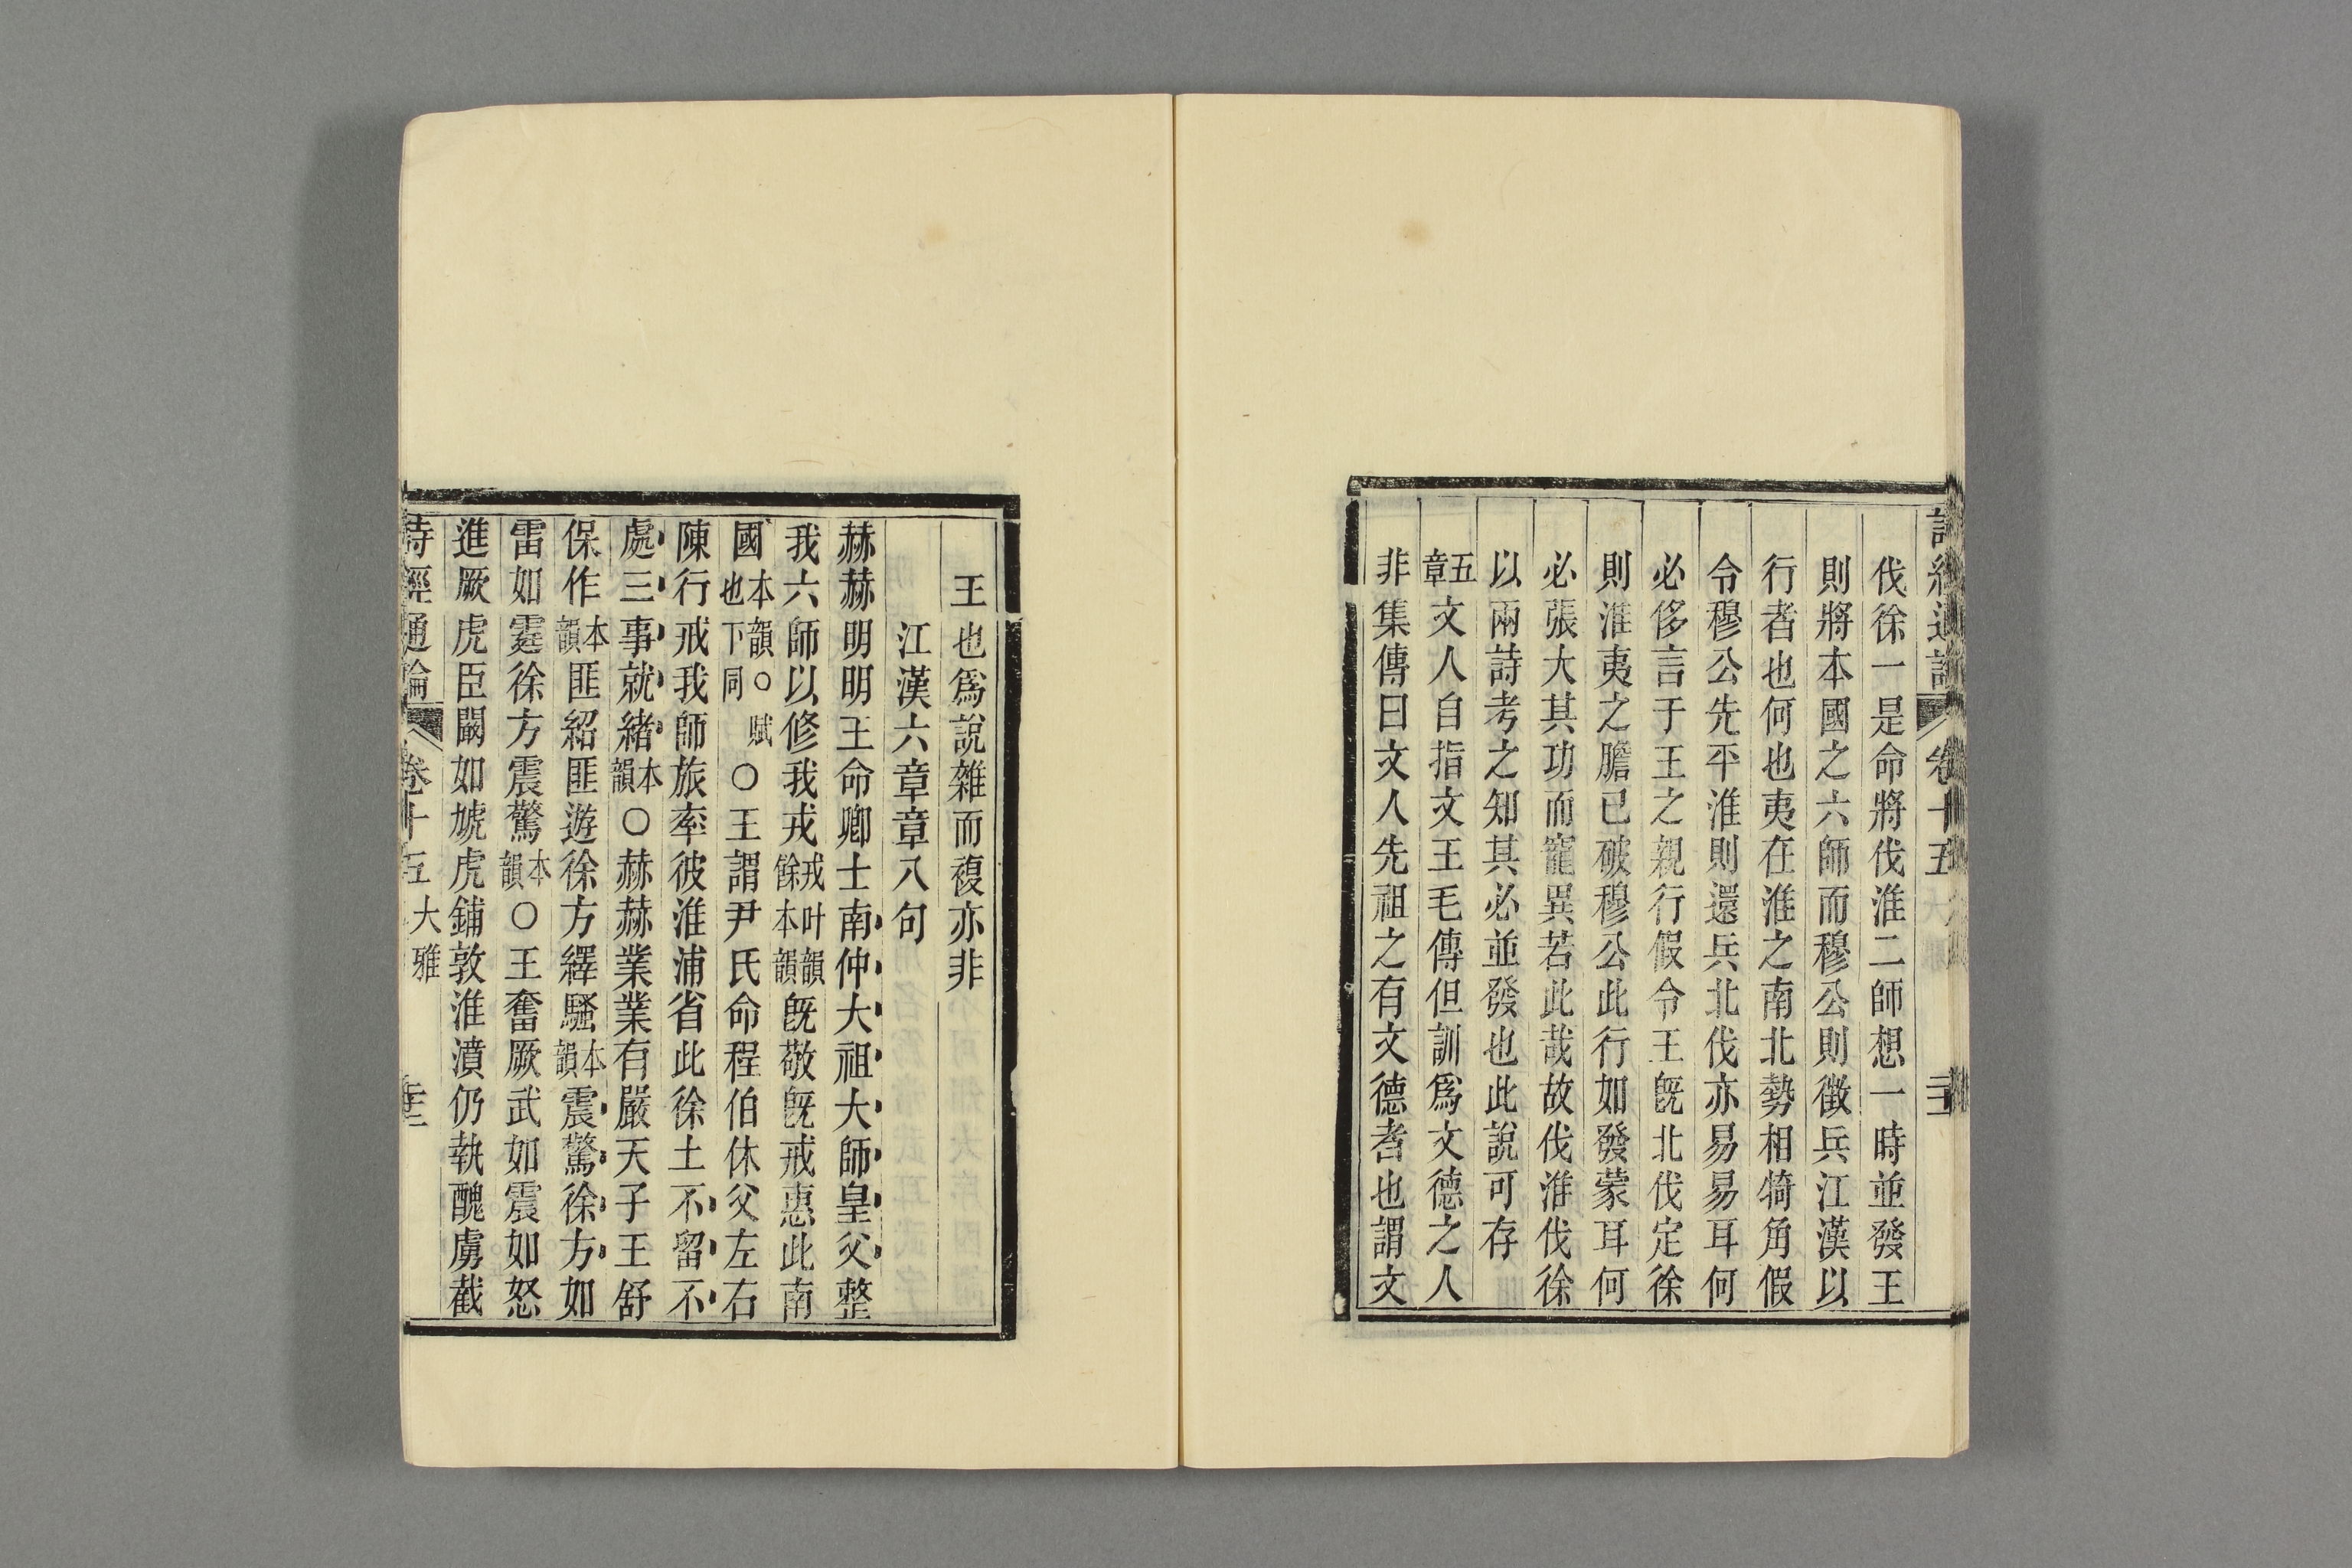 詩經通論 卷十五
伐徐一是命將伐淮二師想一時並發王
則將本國之六師而穆公則徵兵江漢以
行者也何也夷在淮之南北勢相犄角假
令穆公先平淮則還兵北伐亦易易耳何
必侈言于王之親行假令王旣北伐定徐
則淮夷之膽已破穆公此行如發蒙耳何
必張大其功而寵異若此哉故伐淮伐徐
以兩詩考之知其必並發也此說可存
五章文人自指文王毛傳但訓爲文德之人
非集傳曰文人先祖之有文德者也謂文
王也爲說雜而複亦非
江漢六章章八句
赫赫明明王命卿士南仲大祖大師皇父整
我六師以修我戎戎叶韻餘本韻旣敬旣戒惠此南
國本韻○賦也下同○王謂尹氏命程伯休父左右
陳行戒我師旅率彼淮浦省此徐土不留不
處三事就緖本韻○赫赫業業有嚴天子王舒
保作本韻匪紹匪遊徐方繹騷本韻震驚徐方如
雷如霆徐方震驚本韻○王奮厥武如震如怒
進厥虎臣闞如虓虎鋪敦淮濆仍執醜虜截
詩經通論 卷十五 大雅